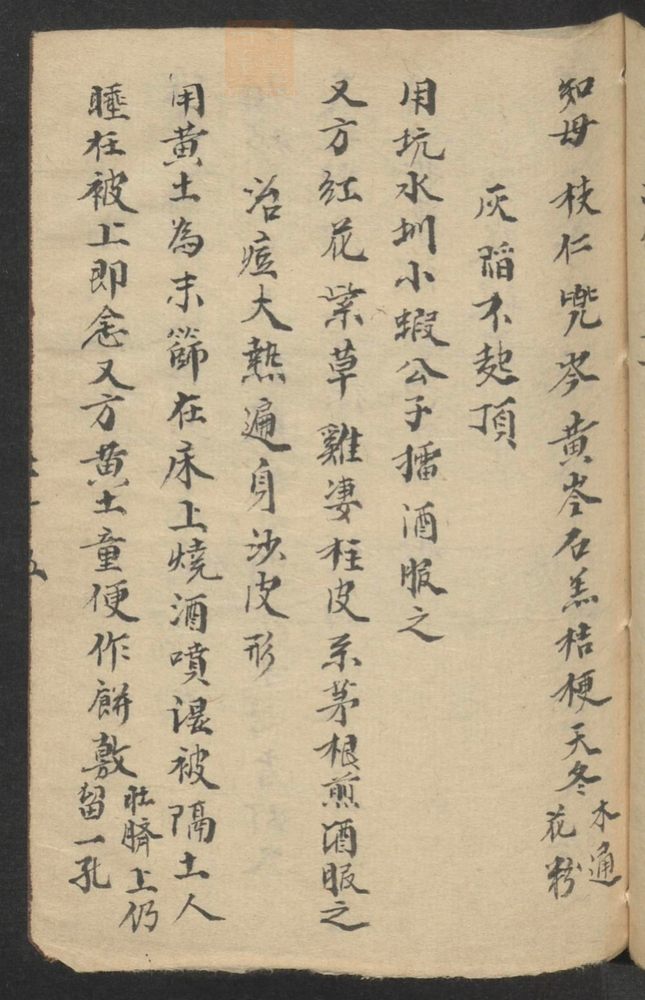 知母枝仁兜岑黄岑石羔桔梗天冬木通花粉
灰陷不起頂
用坑水圳小蝦公子擂酒服之
又方紅花紫草雞婆柱皮糸茅根煎酒服之
治痘大熱遍身沙皮形
用黄土為末篩在床上燒酒噴湿被隔土人
睡在被上即愈又方黄土童便作餅敷肚臍上仍留一孔